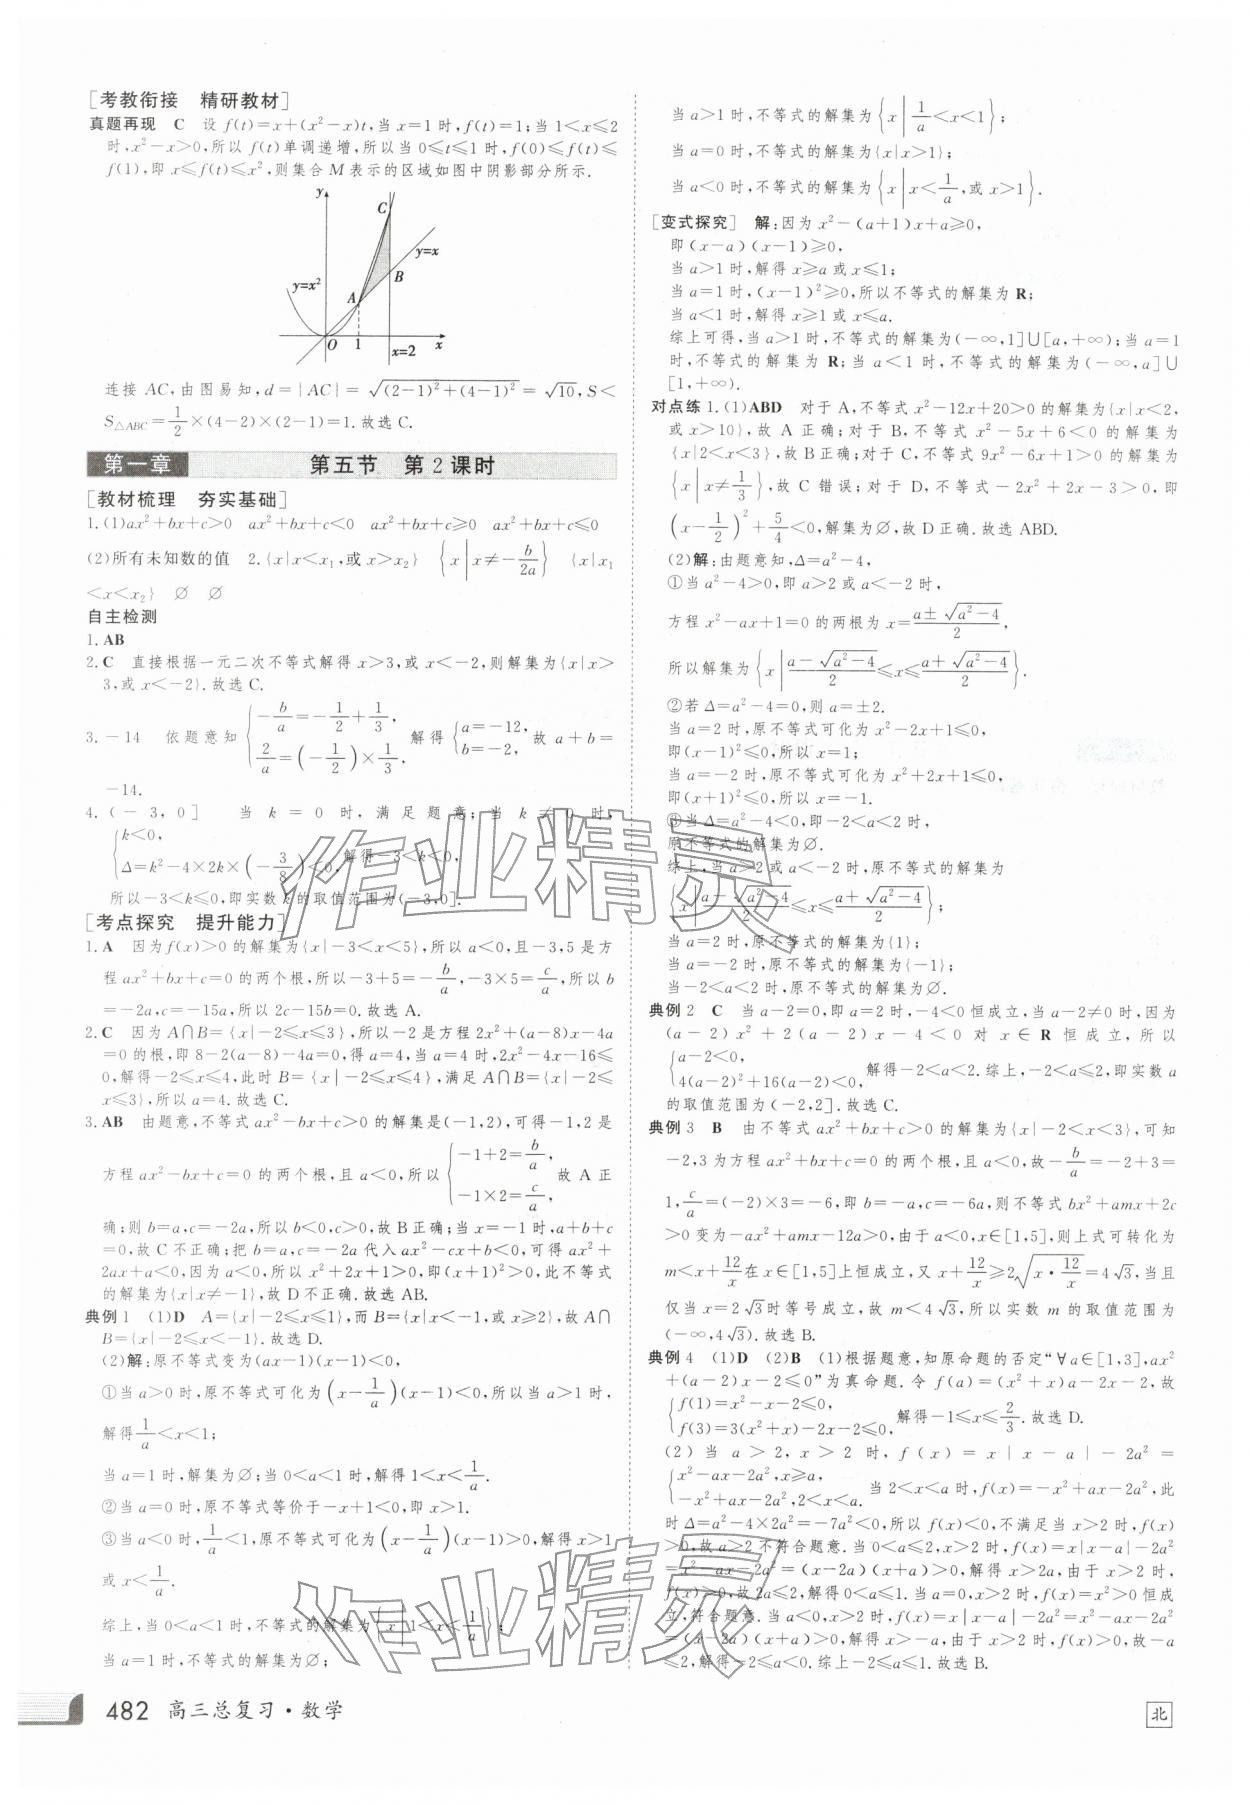 [考教衔接 精研教材]
真题再现 C 设 f(t)=x+(x²-x)t,当 x=1 时,f(t)=1;当 1<x≤2
时,x²-x>0,所以 f(t)单调递增,所以当 0≤t≤1 时,f(0)≤f(t)≤
f(1),即 x≤f(t)≤x²,则集合 M 表示的区域如图中阴影部分所示.
y
C
y=x
y=x²
B
A
O 1 x=2 x
连接 AC,由图易知,d=|AC|=√((2-1)²+(4-1)²)=√10,S<
S△ABC=1/2×(4-2)×(2-1)=1.故选 C.
第一章 第五节 第 2 课时
[教材梳理 夯实基础]
1.(1)ax²+bx+c>0 ax²+bx+c<0 ax²+bx+c≥0 ax²+bx+c≤0
(2)所有未知数的值 2.{x|x<x₁,或 x>x₂} {x|x≠-b/2a} {x|x₁
<x<x₂} ∅ ∅
自主检测
1.AB
2.C 直接根据一元二次不等式解得 x>3,或 x<-2,则解集为{x|x>
3,或 x<-2}.故选 C.
3.-14 依题意知 {-b/a=-1/2+1/3, 2/a=(-1/2)×1/3, 解得 {a=-12, b=-2, 故 a+b=
-14.
4.(-3,0] 当 k=0 时,满足题意;当 k≠0 时,
{k<0, Δ=k²-4×2k×(-3/8)<0, 解得-3<k<0,
所以-3<k≤0,即实数 k 的取值范围为(-3,0].
[考点探究 提升能力]
1.A 因为 f(x)>0 的解集为{x|-3<x<5},所以 a<0,且-3,5 是方
程 ax²+bx+c=0 的两个根,所以-3+5=-b/a,-3×5=c/a,所以 b
=-2a,c=-15a,所以 2c-15b=0.故选 A.
2.C 因为 A∩B={x|-2≤x≤3},所以-2 是方程 2x²+(a-8)x-4a
=0 的根,即 8-2(a-8)-4a=0,得 a=4,当 a=4 时,2x²-4x-16≤
0,解得-2≤x≤4,此时 B={x|-2≤x≤4},满足 A∩B={x|-2≤
x≤3},所以 a=4.故选 C.
3.AB 由题意,不等式 ax²-bx+c>0 的解集是(-1,2),可得-1,2 是
方程 ax²-bx+c=0 的两个根,且 a<0,所以 {-1+2=b/a, -1×2=c/a, 故 A 正
确;则 b=a,c=-2a,所以 b<0,c>0,故 B 正确;当 x=-1 时,a+b+c
=0,故 C 不正确;把 b=a,c=-2a 代入 ax²-cx+b<0,可得 ax²+
2ax+a<0,因为 a<0,所以 x²+2x+1>0,即(x+1)²>0,此不等式
的解集为{x|x≠-1},故 D 不正确.故选 AB.
典例 1 (1)D A={x|-2≤x≤1},而 B={x|x<-1,或 x≥2},故 A∩
B={x|-2≤x<-1}.故选 D.
(2)解:原不等式变为(ax-1)(x-1)<0,
①当 a>0 时,原不等式可化为(x-1/a)(x-1)<0,所以当 a>1 时,
解得1/a<x<1;
当 a=1 时,解集为∅;当 0<a<1 时,解得 1<x<1/a.
②当 a=0 时,原不等式等价于-x+1<0,即 x>1.
③当 a<0 时,1/a<1,原不等式可化为(x-1/a)(x-1)>0,解得 x>1
或 x<1/a.
综上,当 0<a<1 时,不等式的解集为{x|1<x<1/a};
当 a=1 时,不等式的解集为∅;
当 a>1 时,不等式的解集为{x|1/a<x<1};
当 a=0 时,不等式的解集为{x|x>1};
当 a<0 时,不等式的解集为{x|x<1/a,或 x>1}.
[变式探究] 解:因为 x²-(a+1)x+a≥0,
即(x-a)(x-1)≥0,
当 a>1 时,解得 x≥a 或 x≤1;
当 a=1 时,(x-1)²≥0,所以不等式的解集为 R;
当 a<1 时,解得 x≥1 或 x≤a.
综上可得,当 a>1 时,不等式的解集为(-∞,1]∪[a,+∞);当 a=1
时,不等式的解集为 R;当 a<1 时,不等式的解集为(-∞,a]∪
[1,+∞).
对点练 1.(1)ABD 对于 A,不等式 x²-12x+20>0 的解集为{x|x<2,
或 x>10},故 A 正确;对于 B,不等式 x²-5x+6<0 的解集为
{x|2<x<3},故 B 正确;对于 C,不等式 9x²-6x+1>0 的解集为
{x|x≠1/3},故 C 错误;对于 D,不等式-2x²+2x-3>0,即
(x-1/2)²+5/4<0,解集为∅,故 D 正确.故选 ABD.
(2)解:由题意知,Δ=a²-4,
①当 a²-4>0,即 a>2 或 a<-2 时,
方程 x²-ax+1=0 的两根为 x=(a±√(a²-4))/2,
所以解集为{x|(a-√(a²-4))/2≤x≤(a+√(a²-4))/2}.
②若 Δ=a²-4=0,则 a=±2.
当 a=2 时,原不等式可化为 x²-2x+1≤0,
即(x-1)²≤0,所以 x=1;
当 a=-2 时,原不等式可化为 x²+2x+1≤0,
即(x+1)²≤0,所以 x=-1.
③当 Δ=a²-4<0,即-2<a<2 时,
原不等式的解集为∅.
综上,当 a>2 或 a<-2 时,原不等式的解集为
{x|(a-√(a²-4))/2≤x≤(a+√(a²-4))/2};
当 a=2 时,原不等式的解集为{1};
当 a=-2 时,原不等式的解集为{-1};
当-2<a<2 时,原不等式的解集为∅.
典例 2 C 当 a-2=0,即 a=2 时,-4<0 恒成立,当 a-2≠0 时,因为
(a-2)x²+2(a-2)x-4<0 对 x∈R 恒成立,所以
{a-2<0, 4(a-2)²+16(a-2)<0, 解得-2<a<2.综上,-2<a≤2,即实数 a
的取值范围为(-2,2].故选 C.
典例 3 B 由不等式 ax²+bx+c>0 的解集为{x|-2<x<3},可知
-2,3 为方程 ax²+bx+c=0 的两个根,且 a<0,故-b/a=-2+3=
1,c/a=(-2)×3=-6,即 b=-a,c=-6a,则不等式 bx²+amx+2c
>0 变为-ax²+amx-12a>0,由于 a<0,x∈[1,5],则上式可转化为
m<x+12/x在 x∈[1,5]上恒成立,又 x+12/x≥2√(x·12/x)=4√3,当且
仅当 x=2√3时等号成立,故 m<4√3,所以实数 m 的取值范围为
(-∞,4√3).故选 B.
典例 4 (1)D (2)B (1)根据题意,知原命题的否定“∀a∈[1,3],ax²
+(a-2)x-2≤0”为真命题.令 f(a)=(x²+x)a-2x-2,故
{f(1)=x²-x-2≤0, f(3)=3(x²+x)-2x-2≤0, 解得-1≤x≤2/3.故选 D.
(2)当 a>2,x>2 时,f(x)=x|x-a|-2a²=
{x²-ax-2a²,x≥a, -x²+ax-2a²,2<x<a. 当 2<x<a 时,f(x)=-x²+ax-2a²,此
时 Δ=a²-4×2a²=-7a²<0,所以 f(x)<0,不满足当 x>2 时,f(x)
>0,故 a>2 不符合题意.当 0<a≤2,x>2 时,f(x)=x|x-a|-2a²
=x²-ax-2a²=(x-2a)(x+a)>0,解得 x>2a,由于 x>2 时,
f(x)>0,故 2a≤2,解得 0<a≤1.当 a=0,x>2 时,f(x)=x²>0 恒成
立,符合题意.当 a<0,x>2 时,f(x)=x|x-a|-2a²=x²-ax-2a²
=(x-2a)(x+a)>0,解得 x>-a,由于 x>2 时,f(x)>0,故-a
≤2,解得-2≤a<0.综上-2≤a≤1.故选 B.
482 高三总复习·数学
北
作业精灵
作业精灵